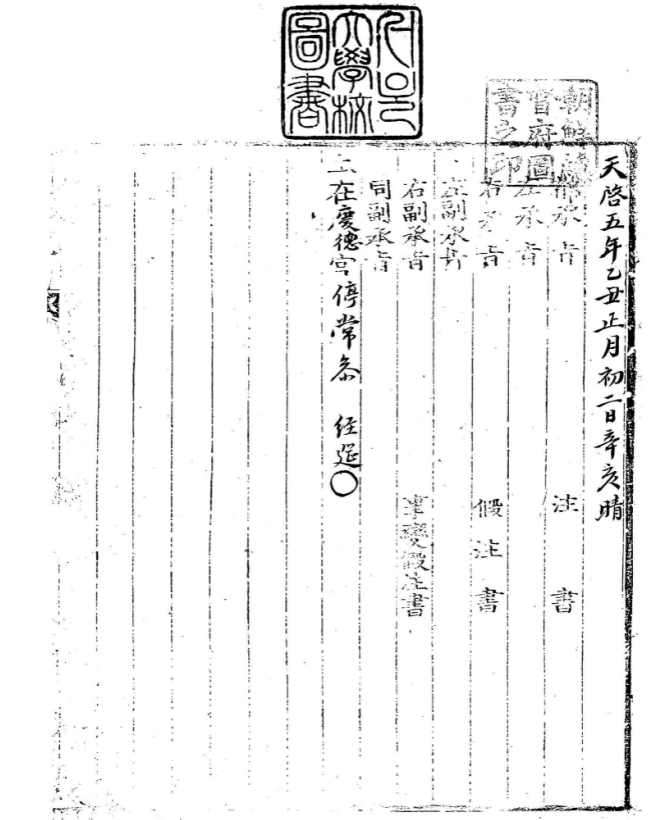 서울
大學校
圖書
朝鮮總
督府圖
書之印
天啓五年乙丑正月初二日辛亥晴
都承旨 注書
左承旨
右承旨 假注書
左副承旨
右副承旨 事變假注書
同副承旨
上在慶德宮停常參 經筵○